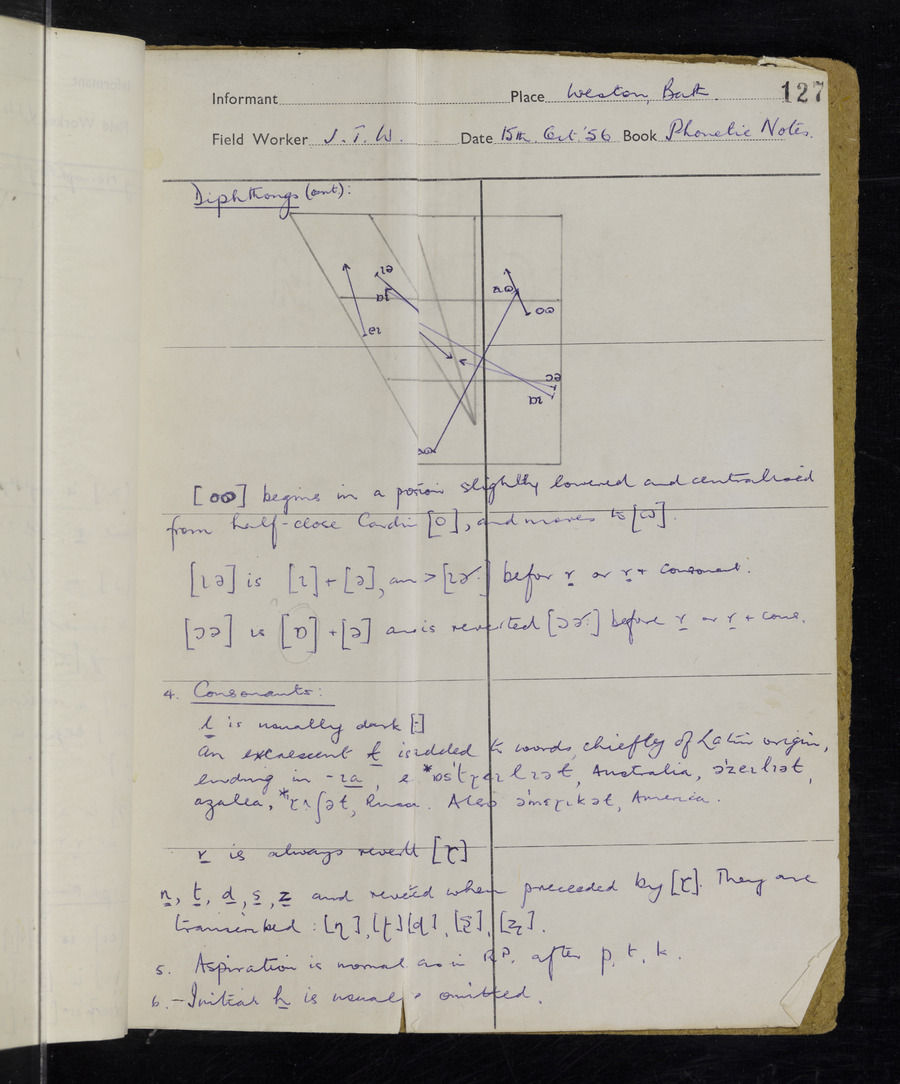 127
Informant Place Weston, Bath.
Field Worker J. T. W. Date 15th Oct '56 Book Phonetic Notes.
Diphthongs (cont):
[oɷ] begins in a position slightly lowered and centralised
from half-close Cardin [o], and moves to [ɷ].
[ɪə] is [ɪ] + [ə], an > [ɪɚ:] before r or r + consonant.
[ɔə] is [ɒ] + [ə] and is reverted [ɔɚ:] before r or r + cons.
4. Consonants:
l is usually dark
an excrescent t is added to words chiefly of Latin origin,
ending in -ɪa, Australia,
azalea, Russia. Also America.
r is always revertd [ɽ]
n, t, d, s, z and reverted when preceeded by [ɽ]. They are
transcribed:
5. Aspiration is normal as in R.P. after p, t, k.
6. - Initial h is usually omitted.